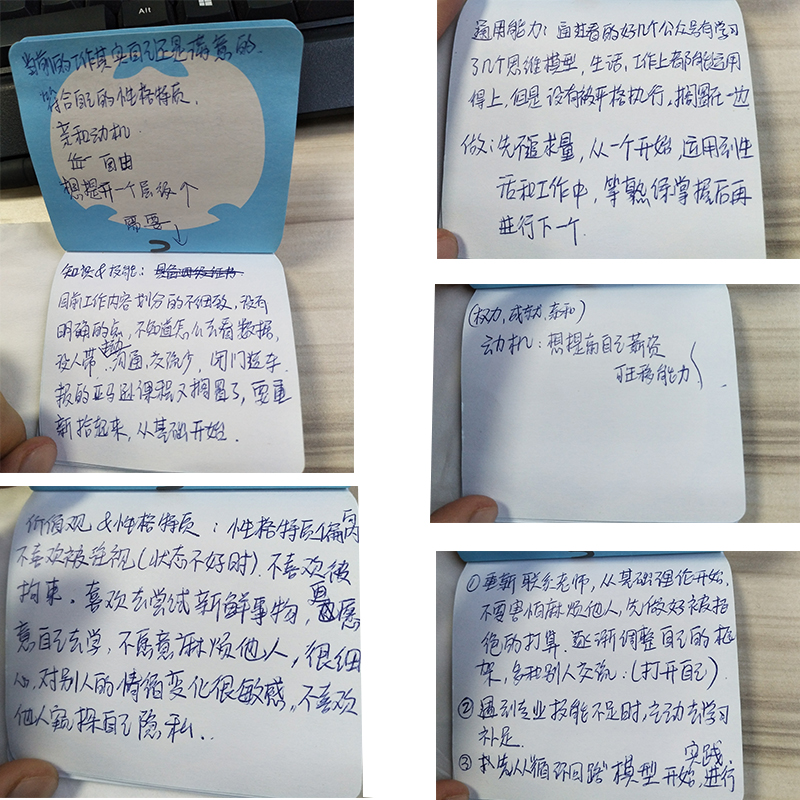 当前的工作其实自己还是满意的.
符合自己的性格特质.
亲和动机.
自由
想提升一个层级个
需要
知识&技能：具备
目前工作内容划分的不细致，没有
明确的，不知道怎么去看数据，
没人带，沟通，交流少，闭门造车.
报的亚马逊课程又搁置了，要重
新拾起来，从基础开始.
价值观&性格特质：性格特质偏内
不喜欢被注视(状态不好时).不喜欢被
拘束.喜欢去尝试新鲜事物，愿
意自己去学，不愿意麻烦他人，很细
心，对别人的情绪变化很敏感，不喜欢
他人窥探自己隐私..
通用能力：面过看的好几个公众号有学习
了几个思维模型，生活、工作上都能运用
得上，但是没有被严格执行，搁置在一边
做：先不追求量，从一个开始，运用到生
活和工作中，等熟练掌握后再
进行下一个.
(权力，成就，亲和)
动机：想提高自己薪资
可迁移能力
①重新联系老师，从基础理论开始，
不要害怕麻烦他人，先做好被拒
绝的打算.逐渐调整自己的框
架，多和别人交流：(打开自己)
②遇到专业技能不足时，主动去学习
补足.
实践.
③我先从"循环回路"模型开始，进行